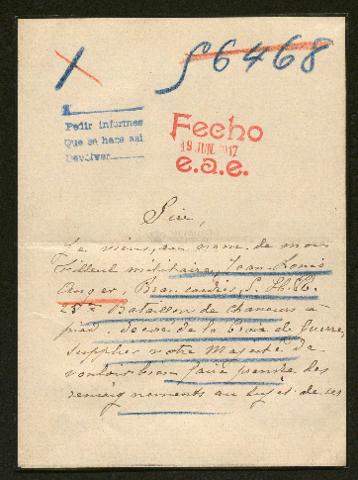 1
56468
Pedir informes
Que se hace asi
Devolver
Fecho
19 JUN. 1917
e.a.e.
Sire,
Je viens, au nom de mon
filleul militaire, Jean-Louis
Auger, Brancardier,
25me Bataillon de Chasseurs à
pied, décoré de la Croix de Guerre,
supplier votre Majesté de
vouloir bien faire prendre des
renseignements au sujet de ses